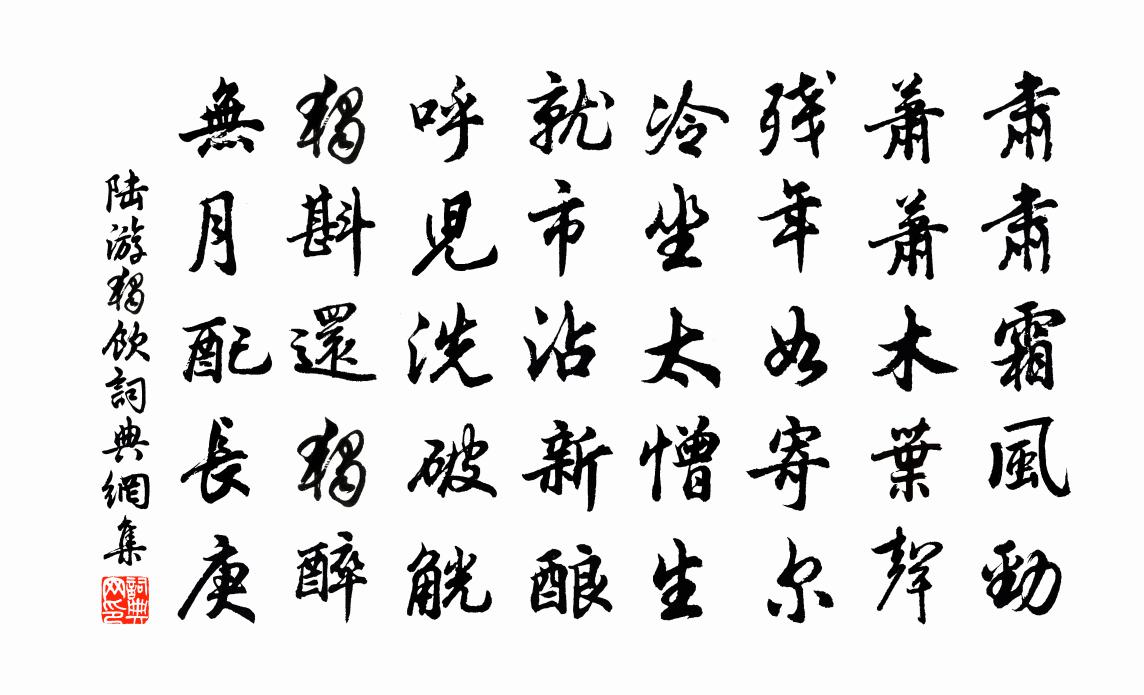 肅肅霜風勁
蕭蕭木葉聲
残年如寄尔
冷坐太憎生
就市沾新酿
呼児洗破觥
獨斟還獨醉
無月配長庚
陆游獨飲詞典網集
詞典网印